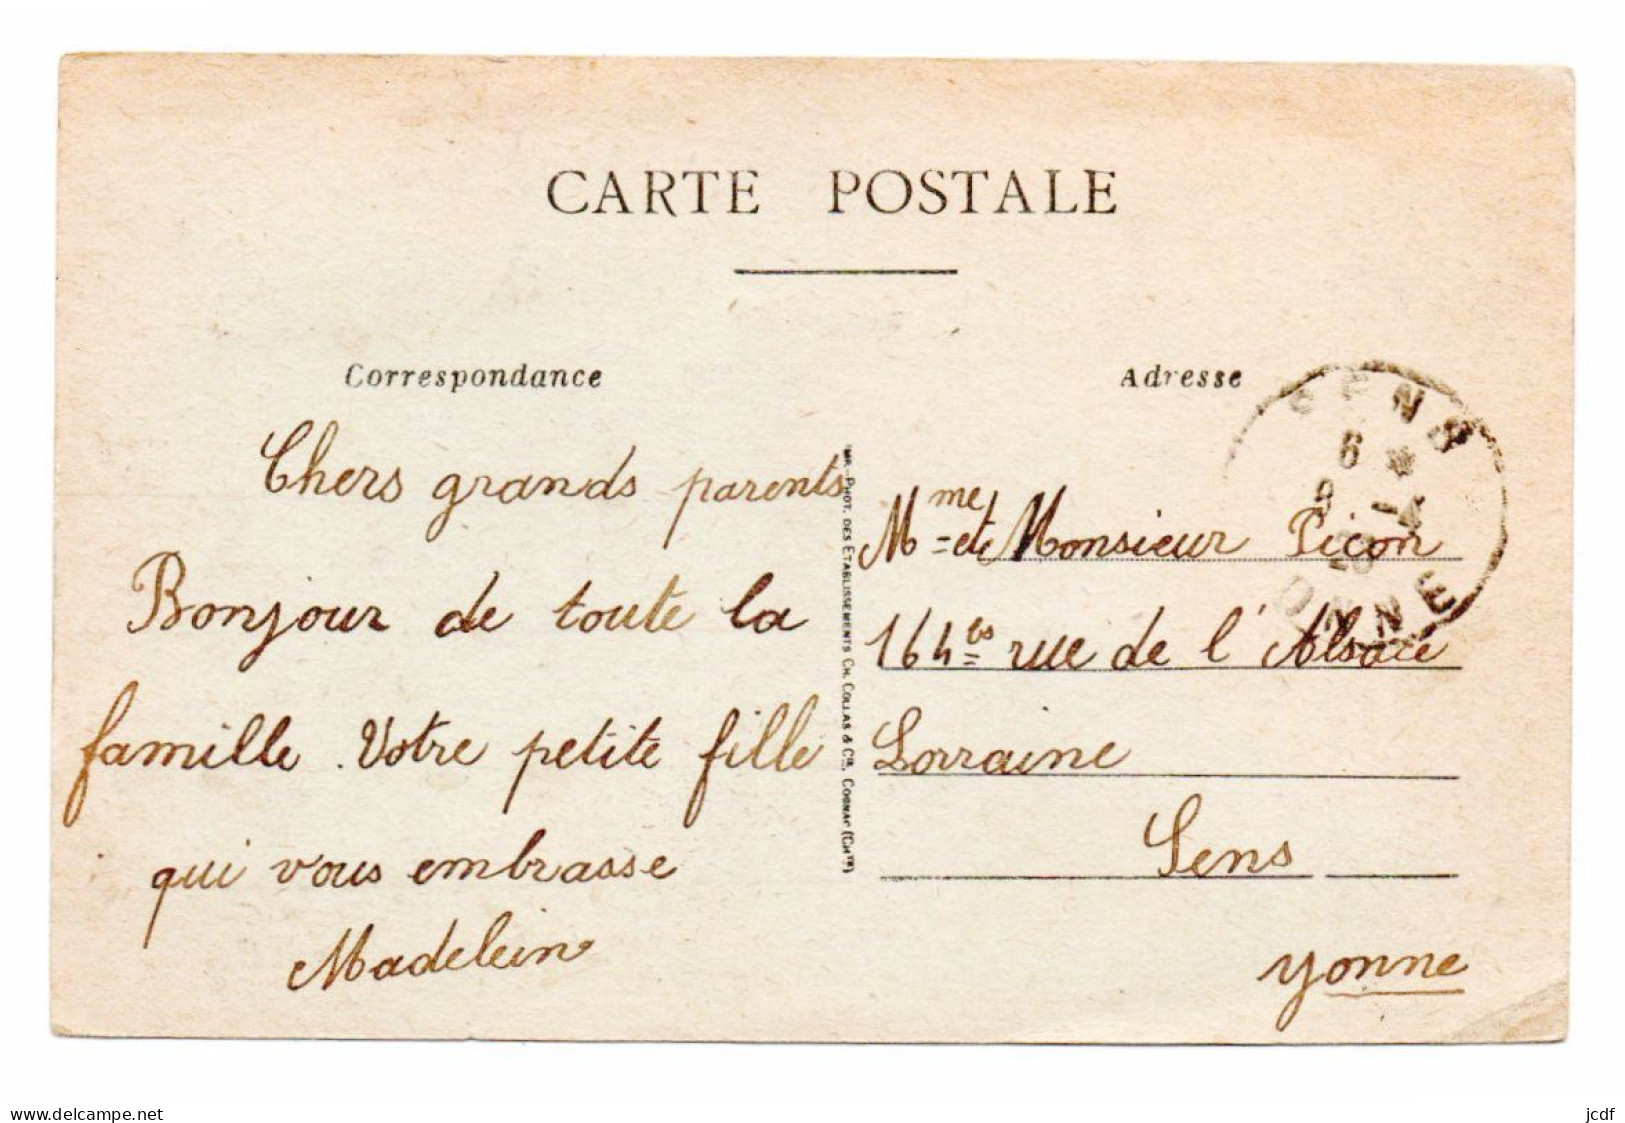 CARTE POSTALE
Correspondance
Chers grands parents
Bonjour de toute la
famille. Votre petite fille
qui vous embrasse
Madelein
IMP. PHOT. DES ETABLISSEMENTS CH. COLLAS & Cie, COGNAC (CHte)
Adresse
SENS
6 *
YONNE
Mme et Monsieur Picon
164 bis rue de l'Alsace
Lorraine
Sens
Yonne
www.delcampe.net
jcdf